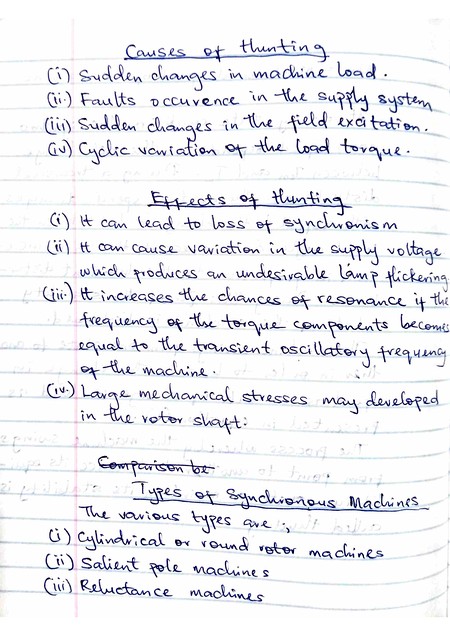 Causes of Hunting
(i) Sudden changes in machine load.
(ii) Faults occurence in the supply system
(iii) Sudden changes in the field excitation.
(iv) Cyclic variation of the load torque.
Effects of Hunting
(i) It can lead to loss of synchronism
(ii) It can cause variation in the supply voltage
which produces an undesirable lamp flickering
(iii) It increases the chances of resonance if the
frequency of the torque components becomes
equal to the transient oscillatory frequency
of the machine.
(iv) Large mechanical stresses may developed
in the rotor shaft.
Comparison be
Types of Synchronous Machines
The various types are;
(i) Cylindrical or round rotor machines
(ii) Salient pole machines
(iii) Reluctance machines